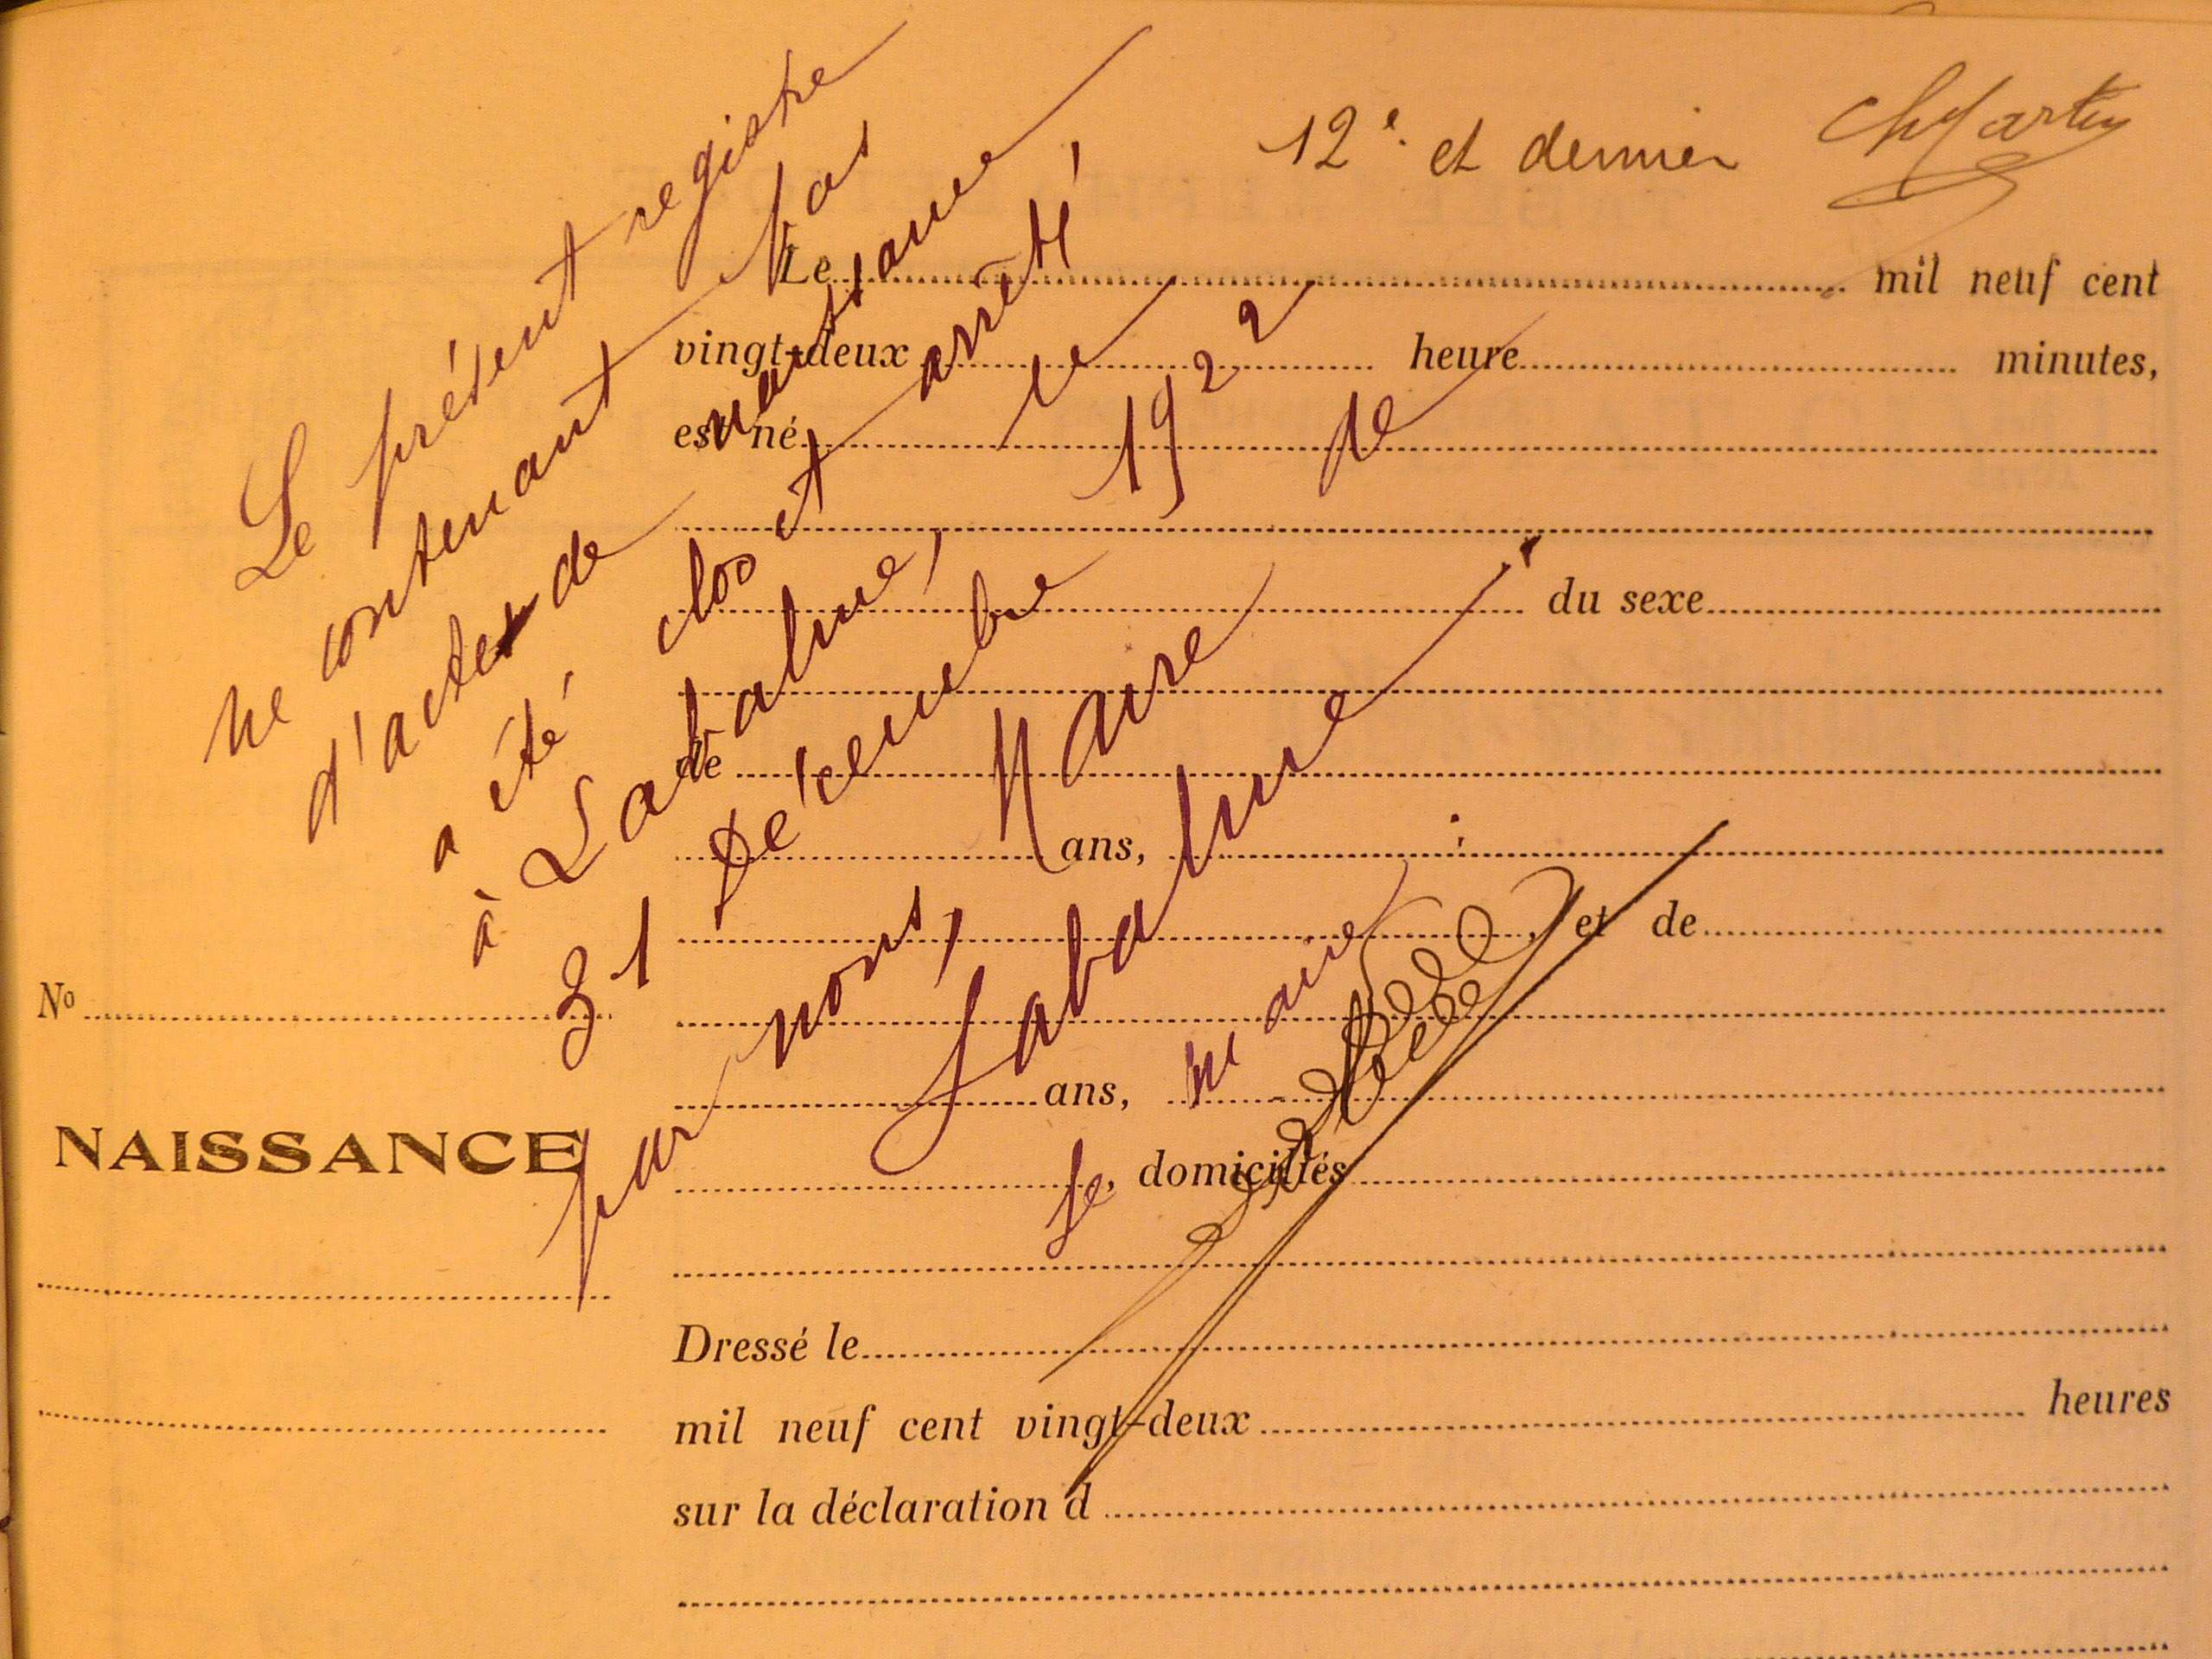 12e et dernier
Le présent registre
ne contenant pas
d'acte de naissance
a été clos et arrêté
à Labalme, le
31 Décembre 1922
par nous, Maire de
Labalme.
Le maire
Le mil neuf cent
vingt-deux heure minutes,
est né
du sexe
de
ans,
, et de
No
ans,
NAISSANCE
, domiciliés
Dressé le
mil neuf cent vingt-deux heures
sur la déclaration d